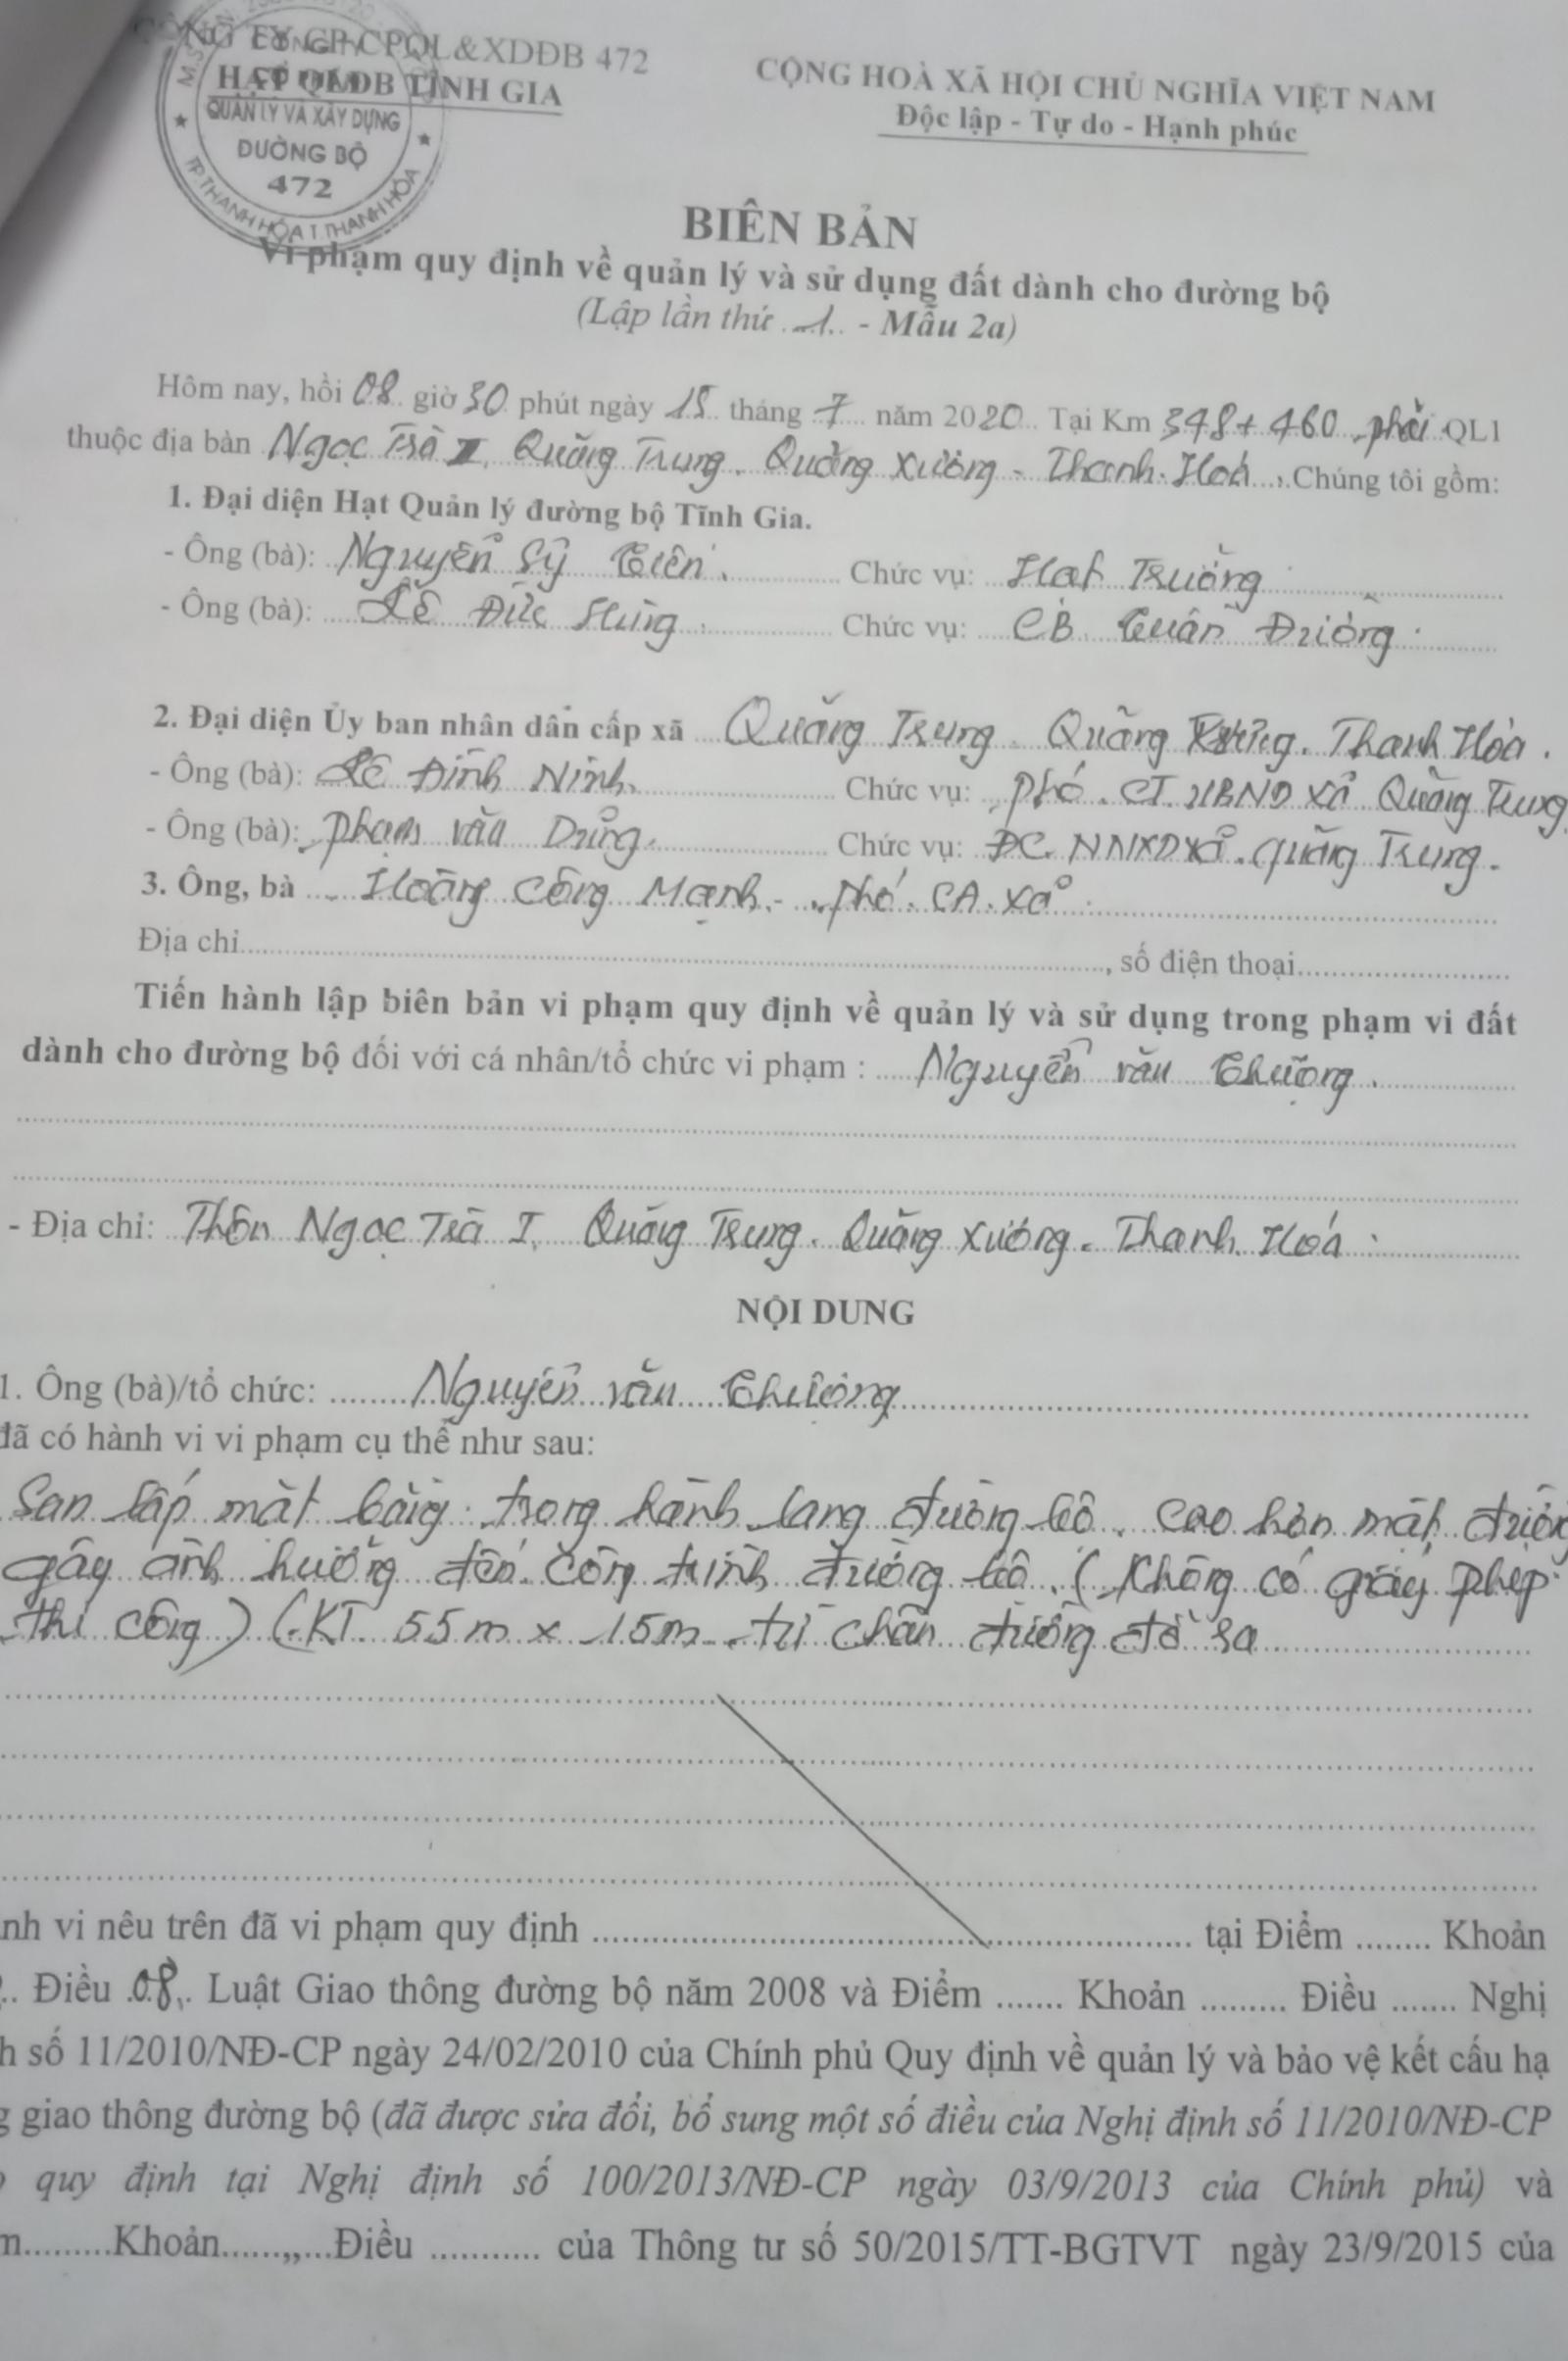 CÔNG TY CP QL&XDĐB 472
HẠT QLĐB TĨNH GIA
CÔNG TY
CỔ PHẦN
QUẢN LÝ VÀ XÂY DỰNG
ĐƯỜNG BỘ
472
TP THANH HÓA T THANH HÓA
CỘNG HOÀ XÃ HỘI CHỦ NGHĨA VIỆT NAM
Độc lập - Tự do - Hạnh phúc
BIÊN BẢN
Vi phạm quy định về quản lý và sử dụng đất dành cho đường bộ
(Lập lần thứ ..1.. - Mẫu 2a)
Hôm nay, hồi 08 giờ 30 phút ngày 15 tháng 7 năm 2020 Tại Km 348+460 phải QL1
thuộc địa bàn Ngọc Trà II, Quảng Trung. Quảng Xương - Thanh Hoá, Chúng tôi gồm:
1. Đại diện Hạt Quản lý đường bộ Tĩnh Gia.
- Ông (bà): Nguyễn Sỹ Tiến. Chức vụ: Hạt Trưởng
- Ông (bà): Lê Đức Hùng Chức vụ: CB Tuần Đường
2. Đại diện Ủy ban nhân dân cấp xã Quảng Trung. Quảng Xương. Thanh Hóa.
- Ông (bà): Lê Đình Ninh Chức vụ: Phó. CT. UBND xã Quảng Trung
- Ông (bà): Phạm văn Dũng Chức vụ: ĐC. NNXD xã. Quảng Trung.
3. Ông, bà Hoàng Công Mạnh - phó. CA. xã
Địa chỉ........, số điện thoại........
Tiến hành lập biên bản vi phạm quy định về quản lý và sử dụng trong phạm vi đất
dành cho đường bộ đối với cá nhân/tổ chức vi phạm : Nguyễn văn Thượng.
- Địa chỉ: Thôn Ngọc Trà I, Quảng Trung. Quảng Xương. Thanh Hoá.
NỘI DUNG
1. Ông (bà)/tổ chức: Nguyễn văn Thượng
đã có hành vi vi phạm cụ thể như sau:
San lấp mặt bằng trong hành lang đường bộ. cao hơn mặt đường
gây ảnh hưởng đến công trình đường bộ. (Không có giấy phép
thi công) (KT 55m x 15m từ chân đường đổ ra
nh vi nêu trên đã vi phạm quy định ........ tại Điểm ........ Khoản
.. Điều .08.. Luật Giao thông đường bộ năm 2008 và Điểm ....... Khoản ......... Điều ....... Nghị
h số 11/2010/NĐ-CP ngày 24/02/2010 của Chính phủ Quy định về quản lý và bảo vệ kết cấu hạ
g giao thông đường bộ (đã được sửa đổi, bổ sung một số điều của Nghị định số 11/2010/NĐ-CP
quy định tại Nghị định số 100/2013/NĐ-CP ngày 03/9/2013 của Chính phủ) và
m.........Khoản.........Điều ........... của Thông tư số 50/2015/TT-BGTVT ngày 23/9/2015 của